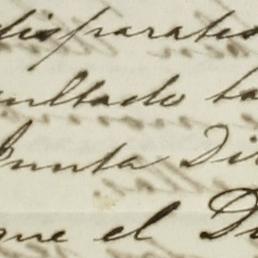 disparates
sultado ta
Junta Di
que el Di